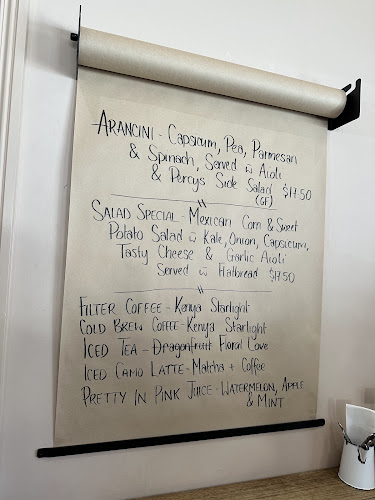 ARANCINI - Capsicum, Pea, Parmesan
& Spinach, Served w Aioli
& Percys Side Salad $17.50
(GF)
SALAD SPECIAL - Mexican Corn & Sweet
Potato Salad w Kale, Onion, Capsicum,
Tasty Cheese & Garlic Aioli
Served w Flatbread $17.50
FILTER COFFEE - Kenya Starlight
COLD BREW COFFEE - Kenya Starlight
ICED TEA - Dragonfruit Floral Love
ICED CAMO LATTE - Matcha + Coffee
PRETTY IN PINK JUICE - WATERMELON, APPLE
& MINT